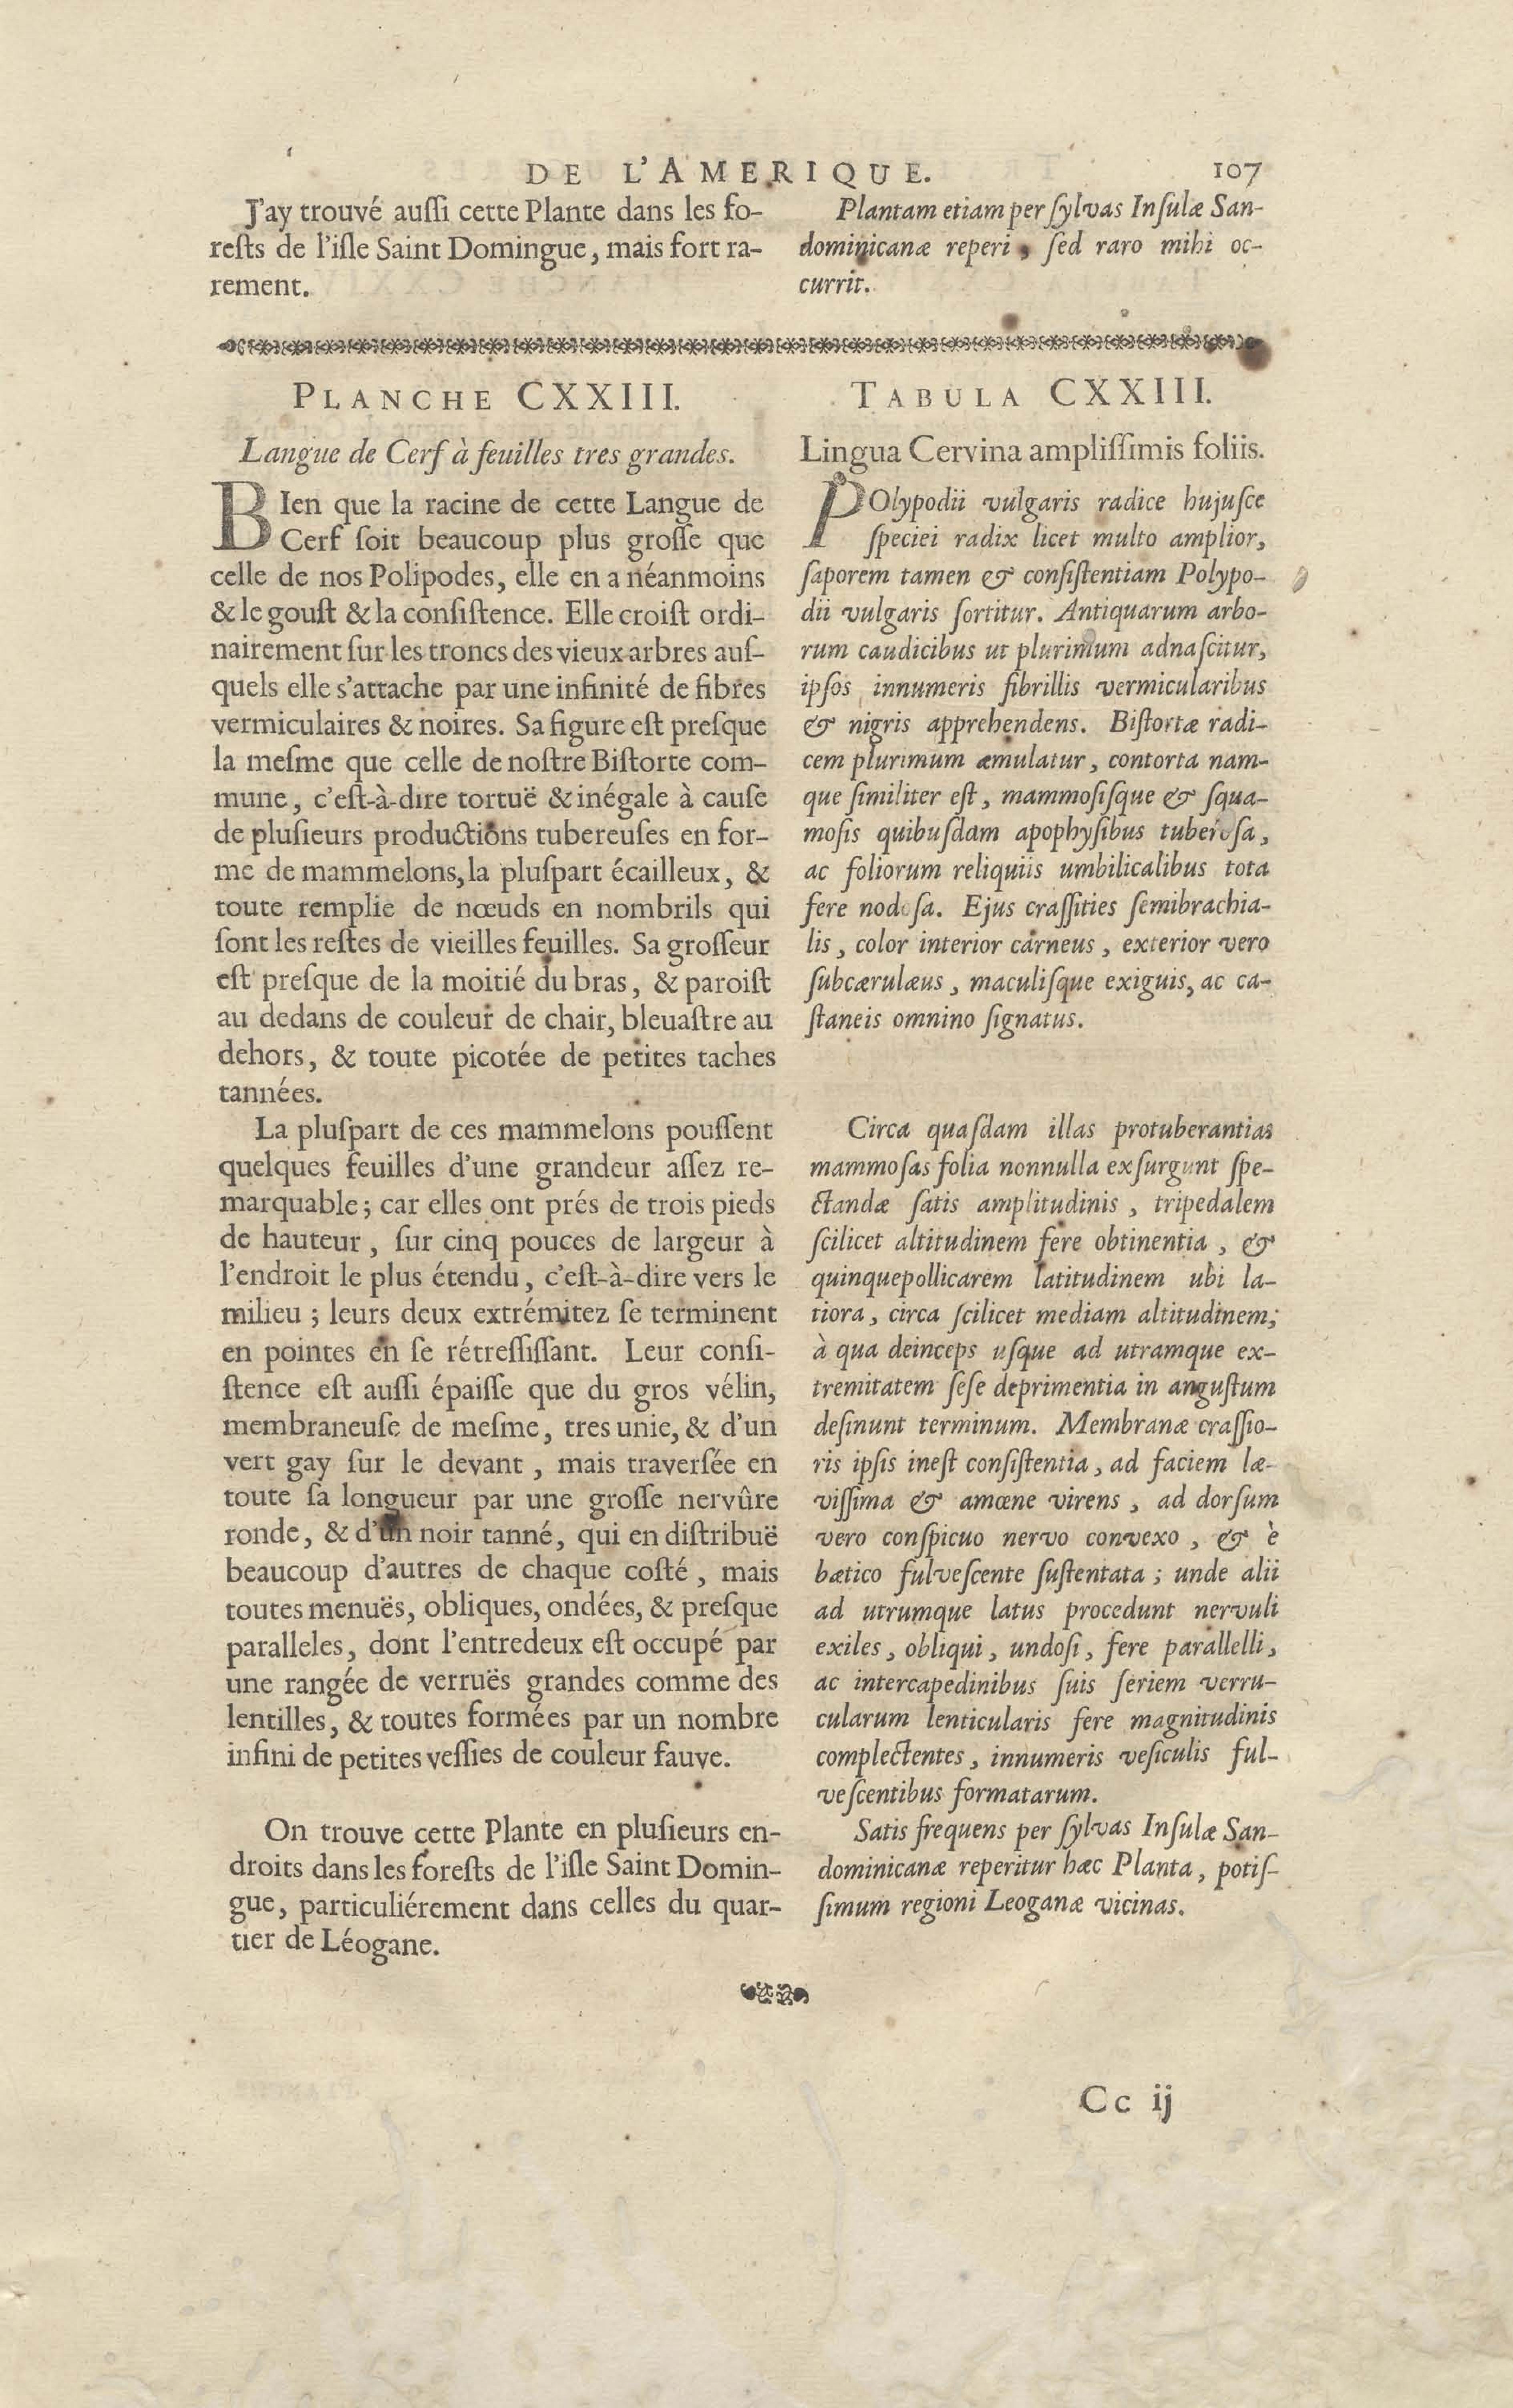 DE L'AMERIQUE. 107
J'ay trouvé auſſi cette Plante dans les fo-
reſts de l'iſle Saint Domingue, mais fort ra-
rement.
PLANCHE CXXIII.
Langue de Cerf à feuilles tres grandes.
BIen que la racine de cette Langue de
Cerf ſoit beaucoup plus groſſe que
celle de nos Polipodes, elle en a néanmoins
& le gouſt & la conſiſtence. Elle croiſt ordi-
nairement ſur les troncs des vieux arbres auſ-
quels elle s'attache par une infinité de fibres
vermiculaires & noires. Sa figure eſt preſque
la meſme que celle de noſtre Biſtorte com-
mune, c'eſt-à-dire tortuë & inégale à cauſe
de pluſieurs productions tubereuſes en for-
me de mammelons, la pluſpart écailleux, &
toute remplie de nœuds en nombrils qui
ſont les reſtes de vieilles feuilles. Sa groſſeur
eſt preſque de la moitié du bras, & paroiſt
au dedans de couleur de chair, bleuaſtre au
dehors, & toute picotée de petites taches
tannées.
La pluſpart de ces mammelons pouſſent
quelques feuilles d'une grandeur aſſez re-
marquable; car elles ont prés de trois pieds
de hauteur, ſur cinq pouces de largeur à
l'endroit le plus étendu, c'eſt-à-dire vers le
milieu; leurs deux extrémitez ſe terminent
en pointes en ſe rétreſſiſſant. Leur conſi-
ſtence eſt auſſi épaiſſe que du gros vélin,
membraneuſe de meſme, tres unie, & d'un
vert gay ſur le devant, mais traverſée en
toute ſa longueur par une groſſe nervûre
ronde, & d'un noir tanné, qui en diſtribuë
beaucoup d'autres de chaque coſté, mais
toutes menuës, obliques, ondées, & preſque
paralleles, dont l'entredeux eſt occupé par
une rangée de verruës grandes comme des
lentilles, & toutes formées par un nombre
infini de petites veſſies de couleur fauve.
On trouve cette Plante en pluſieurs en-
droits dans les foreſts de l'iſle Saint Domin-
gue, particuliérement dans celles du quar-
tier de Léogane.
Plantam etiam per ſylvas Inſulæ San-
dominicanæ reperi, ſed raro mihi oc-
currit.
TABULA CXXIII.
Lingua Cervina ampliſſimis foliis.
POlypodii vulgaris radice hujuſce
ſpeciei radix licet multo amplior,
ſaporem tamen & conſiſtentiam Polypo-
dii vulgaris ſortitur. Antiquarum arbo-
rum caudicibus ut plurimum adnaſcitur,
ipſos innumeris fibrillis vermicularibus
& nigris apprehendens. Biſtortæ radi-
cem plurimum æmulatur, contorta nam-
que ſimiliter eſt, mammoſiſque & ſqua-
moſis quibuſdam apophyſibus tuberoſa,
ac foliorum reliquiis umbilicalibus tota
fere nodoſa. Ejus craſſities ſemibrachia-
lis, color interior carneus, exterior vero
ſubcærulæus, maculiſque exiguis, ac ca-
ſtaneis omnino ſignatus.
Circa quaſdam illas protuberantias
mammoſas folia nonnulla exſurgunt ſpe-
ctandæ ſatis amplitudinis, tripedalem
ſcilicet altitudinem fere obtinentia, &
quinquepollicarem latitudinem ubi la-
tiora, circa ſcilicet mediam altitudinem;
à qua deinceps uſque ad utramque ex-
tremitatem ſeſe deprimentia in anguſtum
deſinunt terminum. Membranæ craſſio-
ris ipſis ineſt conſiſtentia, ad faciem læ-
viſſima & amœne virens, ad dorſum
vero conſpicuo nervo convexo, & è
bætico fulveſcente ſuſtentata; unde alii
ad utrumque latus procedunt nervuli
exiles, obliqui, undoſi, fere parallelli,
ac intercapedinibus ſuis ſeriem verru-
cularum lenticularis fere magnitudinis
complectentes, innumeris veſiculis ful-
veſcentibus formatarum.
Satis frequens per ſylvas Inſulæ San-
dominicanæ reperitur hæc Planta, potiſ-
ſimum regioni Leoganæ vicinas.
Cc ij